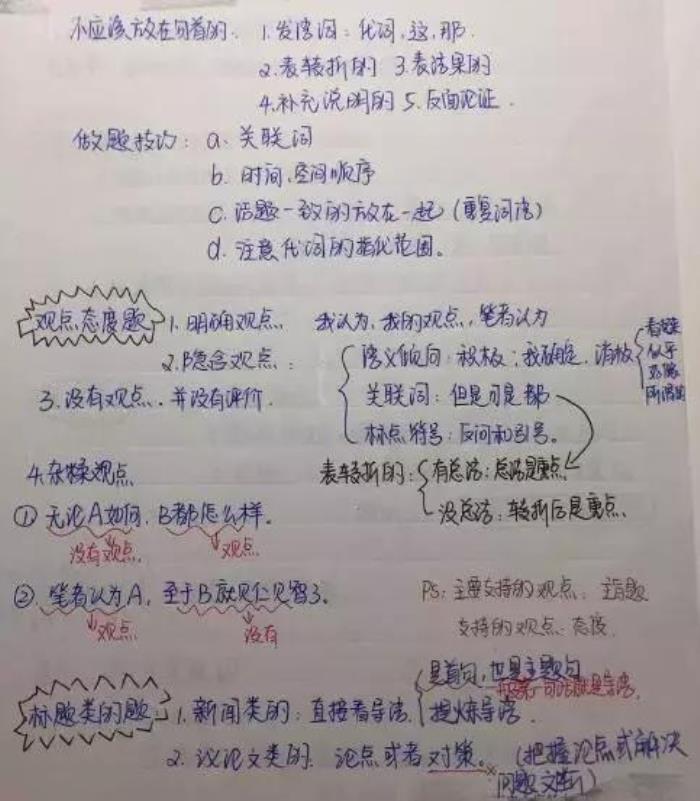 不应该放在句首的. 1.发语词:代词,这,那.
2.表转折的 3.表结果的
4.补充说明的 5.反面论证.
做题技巧: a. 关联词
b. 时间、空间顺序
c. 话题一致的放在一起(重复词语)
d. 注意代词的指代范围。
观点态度题 1.明确观点. 我认为,我的观点,笔者认为
2.隐含观点: 语义倾向:积极:我确定,消极 看似
似乎
所谓的
3.没有观点.并没有评价. 关联词:但是可是都
标点符号:反问和引号。
4.杂糅观点 表转折的: 有总结:总结是重点
没总结:转折后是重点.
① 无论A如何,B都怎么样。
没有观点. 观点.
② 笔者认为A,至于B就见仁见智了。
观点. 没有
PS:主要支持的观点:主旨题
支持的观点:态度.
标题类的题 1.新闻类的:直接看导语. 是首句,但是主题句
一般第一句话就是导语.
提炼导语.
2.议论文类的:论点或者对策。(把握论点或解决
问题文断)